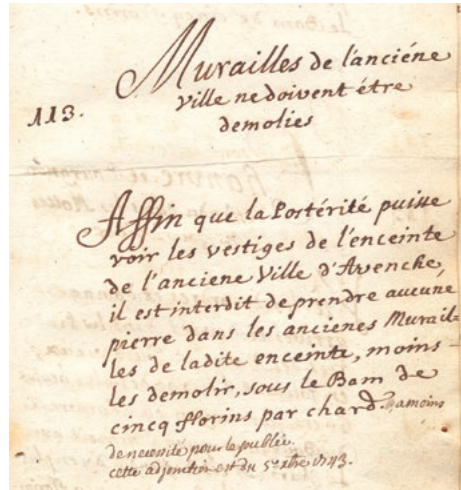 Murailles de l'anciéne
ville ne doivent étre
113.
demolies
Affin que la Postérité puisse
voir les vestiges de l'enceinte
de l'anciene Ville d'Avenche,
il est interdit de prendre aucune
pierre dans les ancienes Murail-
les de ladite enceinte, moins
les demolir, sous le Bam de
cinq florins par chard. a moins
de necessité pour le publiq.
cette adjonction est du 5e xbre 1743.